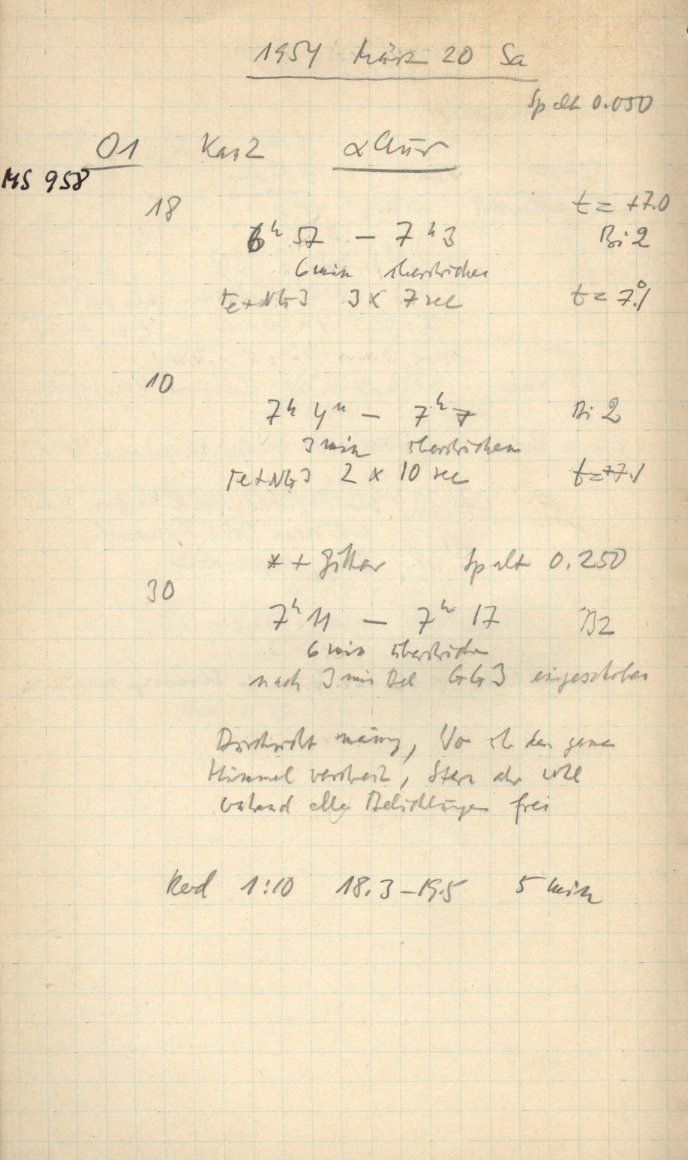 1954 März 20 Sa
Spalt 0.050
O1 Kas2 αAur
MS 958
18 t = +7.0
6h 57 – 7h 3 Bi 2
6 min überstrichen
Fe+NG3 3 x 7 sec t = 7.1
10
7h 4m – 7h 7 Bi 2
3 min überstrichen
Fe+NG3 2 x 10 sec t=+7.1
* + Filter Spalt 0.250
30
7h 11 – 7h 17 B2
6 min überstrichen
nach 3 min Bel GG3 eingeschoben
Durchsicht mässig, den ganzen
Himmel, Stern
während aller Belichtungen frei
Rod 1:10 18.3 – 19.5 5 min